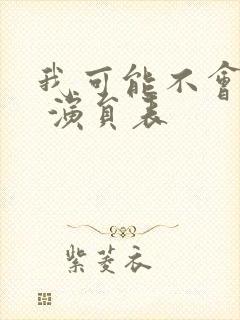 我可能不會
演員表
紫菱衣